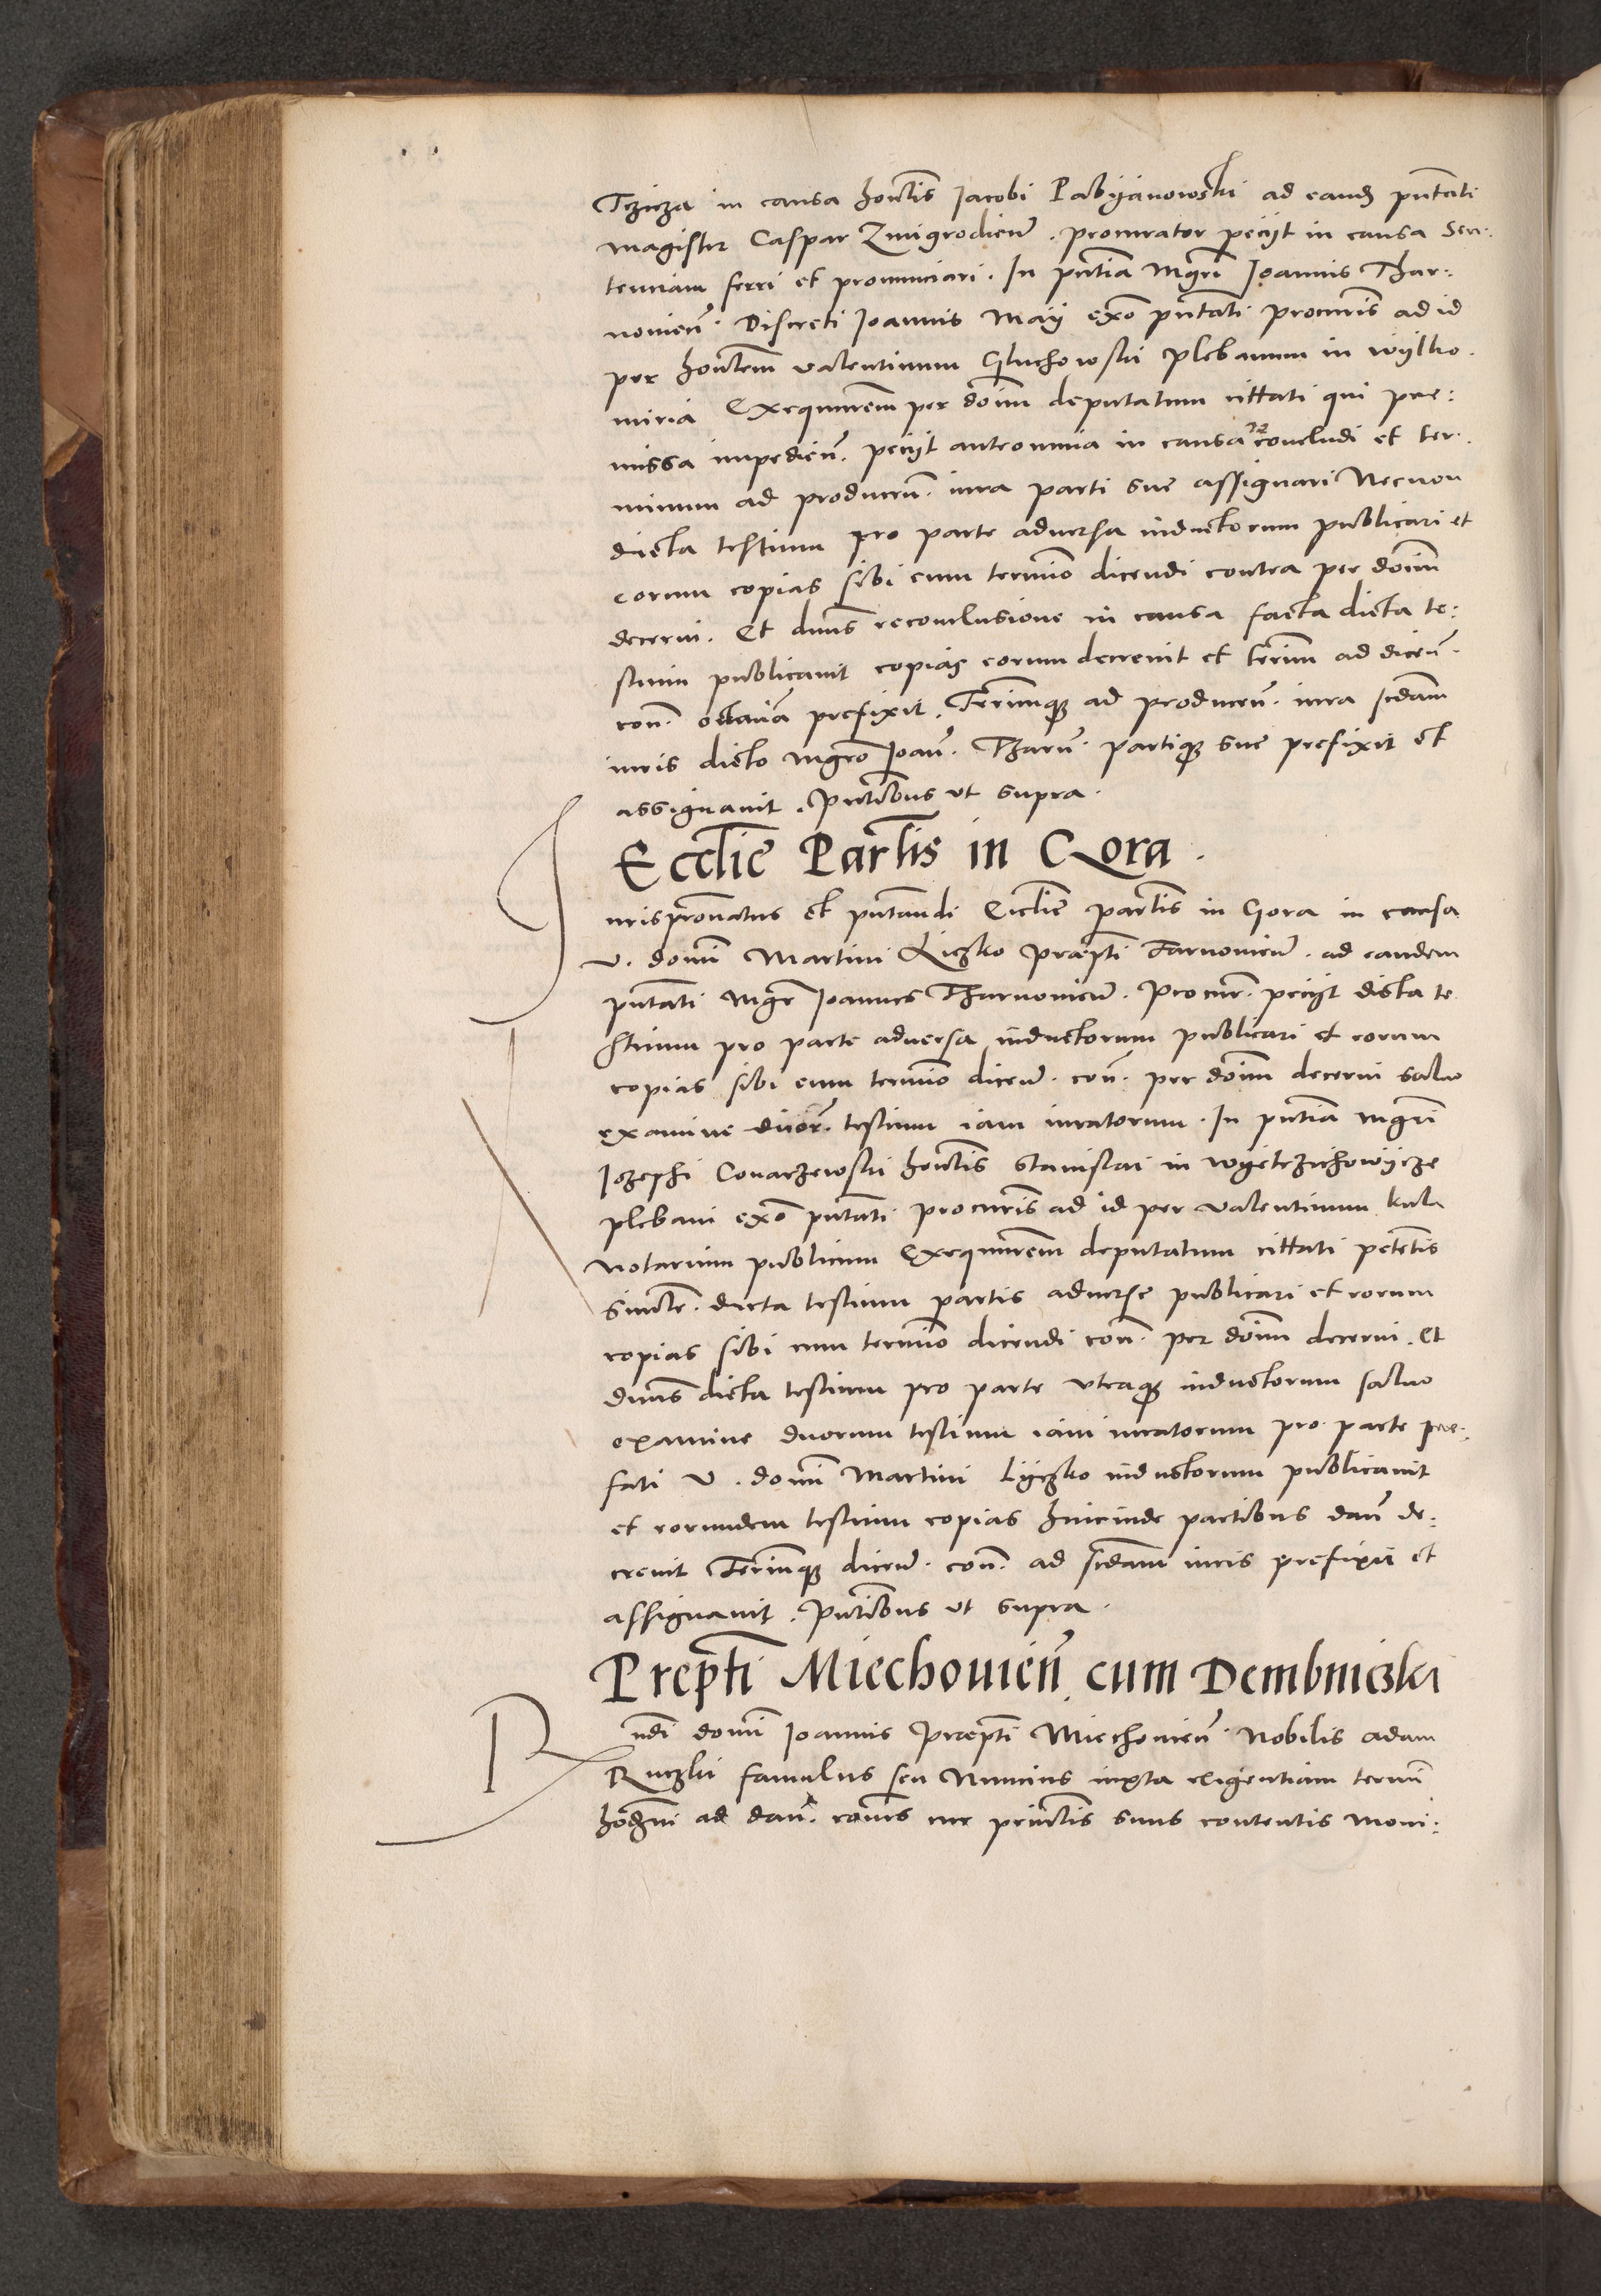 Trzicza in causa hon̄tis Jacobi Pabyanowski ad eandꝫ pn̄tati
magister Caspar Zmigrodien̄. procurator peciit in causa Sen:
tenciam ferri et pronunciari. In pn̄tia Mgr̄i Joannis Thar:
novien̄. Discreti Joannis Maij exo͞ pn̄tati procur̄is ad id
per hon̄tem valentinum Gluchowski plebanum in wylko:
miria Exequur̄em per doīm deputatum cittati qui pre:
missa impedien̄. peciit anteomnia in causa re concludi et ter:
minum ad producen̄. iura parti sue assignari Necnon
dicta testium pro parte adversa inductorum publicari et
eorum copias sibi cum termio͞ dicendi contra per doīm
decerni. Et dn̄us reconclusione in causa facta dicta te:
stium publicavit copias eorum decrevit et ter̄im ad dicen̄.
con̄. octavā prefixit. Ter̄imqꝫ ad producen̄. iura sc̄dam
iuris dicto Mgr̄o Joan̄. Tharn̄. partiqꝫ sue prefixit et
assignavit. Pn̄tibus ut supra.
Eccl̄ie Par̄lis in Gora.
Jurispr̄onatus et pn̄tandi Eccl̄ie par̄lis in Gora in causa
v. domī Martini Liczko Prep̄ti Tarnovien̄. ad eandem
pn̄tati Mgr̄ Joannes Tharnovien̄. Procur̄. peciit dicta te
stium pro parte adversa inductorum publicari et eorum
copias sibi cum termio͞ dicen̄. con̄. per doīm decerni salvo
examine duor̄. testium iam iuratorum. In pn̄tia Mgr̄i
Jozephi Conarzewski hon̄tis Stanislai in wyetrzichowycze
plebani exo͞ pn̄tati procur̄is ad id per valentinum kula
notarium publicum Exequur̄em deputatum cittati petentis
simil̄r. dicta testium partis adverse publicari et eorum
copias sibi cum termio͞ dicendi con̄. per doīm decerni. Et
dn̄us dicta testium pro parte utraqꝫ inductorum salvo
examine duorum testium iam iuratorum pro parte pre:
fati v. domī Martini Lyczko inductorum publicavit
et eorundem testium copias hincinde partibus dan̄ de:
crevit Ter̄imqꝫ dicen̄. con̄. ad sc̄dam iuris prefixit et
assignavit. Pn̄tibus ut supra.
Prep̄ti Miechovien̄ cum Dembniczka
Rn̄di domī Joannis Prep̄ti Miechovien̄ Nobilis adam
Ruczki famulus seu Nuncius iuxta exigentiam termī
hodīerni ad dan̄. causas in suis contentis Moni: